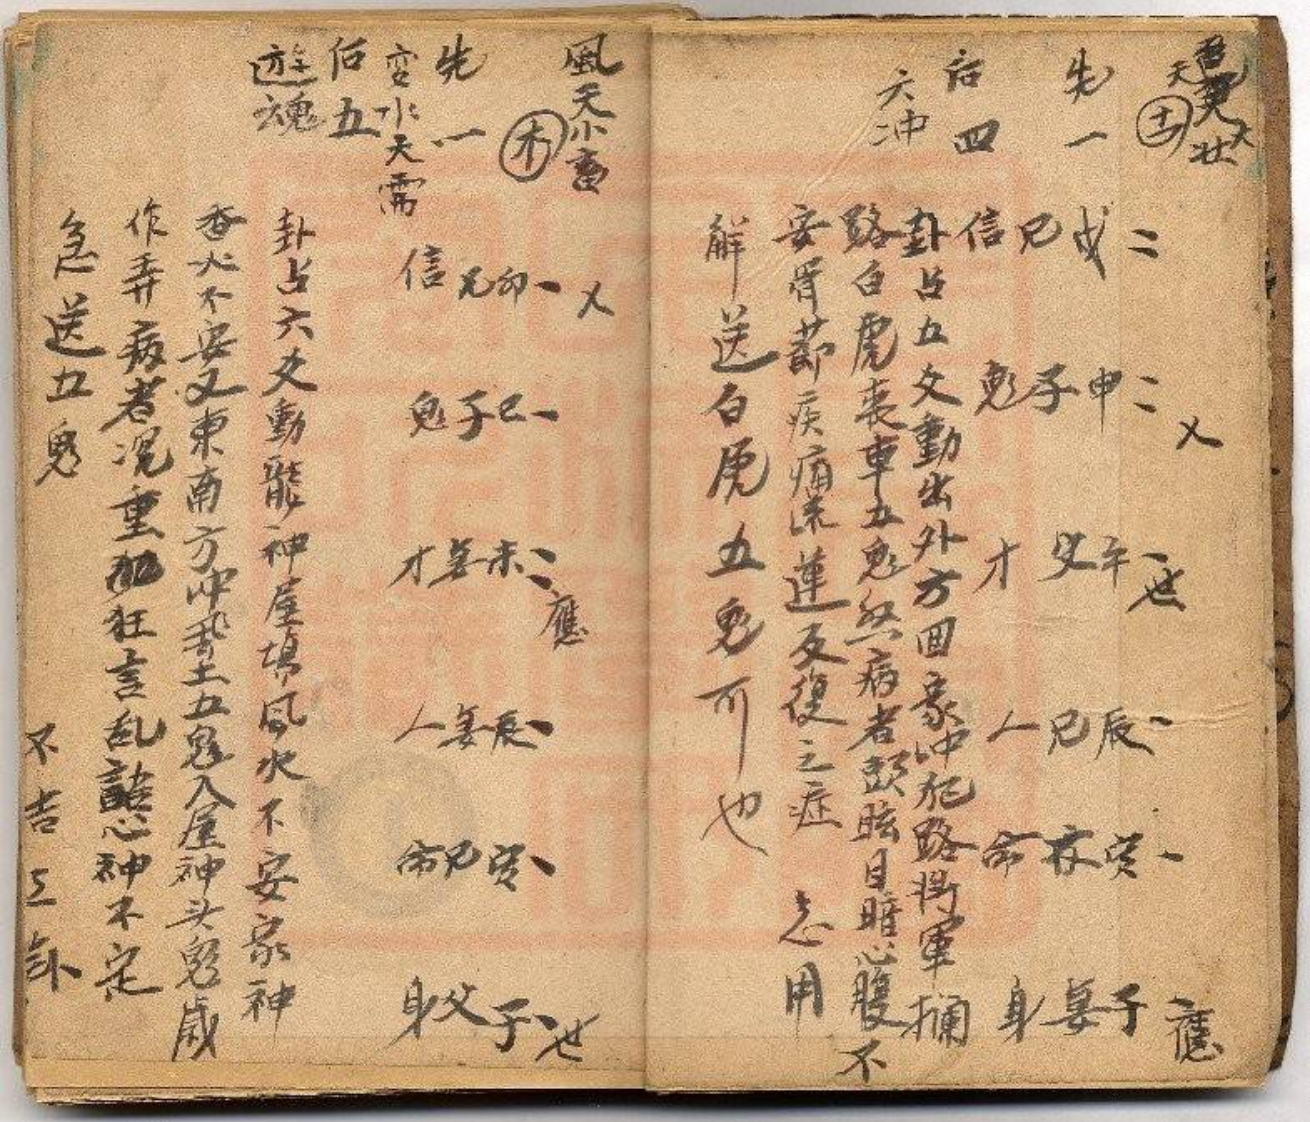 天大壯
㊏
先一
后四
六冲
戌兄信
申子鬼
乂
午父才
世
辰兄人
寅官命
子妻身
應
卦占五爻動出外方回家冲犯路將軍攔
路白虎喪車五鬼然病者頭眩目暗心腹不
安骨節疾痛流蓮反復之症 急用
解送白虎五鬼可也
風天小畜
木
先一
变水天需
后五
遊魂
卯兄信
乂
巳子鬼
未妻才
應
辰妻人
寅兄命
子父身
世
卦占六爻動龍神屋塲風水不安家神
香火不安又東南方冲動土五鬼入屋神头鬼歲
作弄病者况重狂言乱語心神不定
急送五鬼
不吉之卦